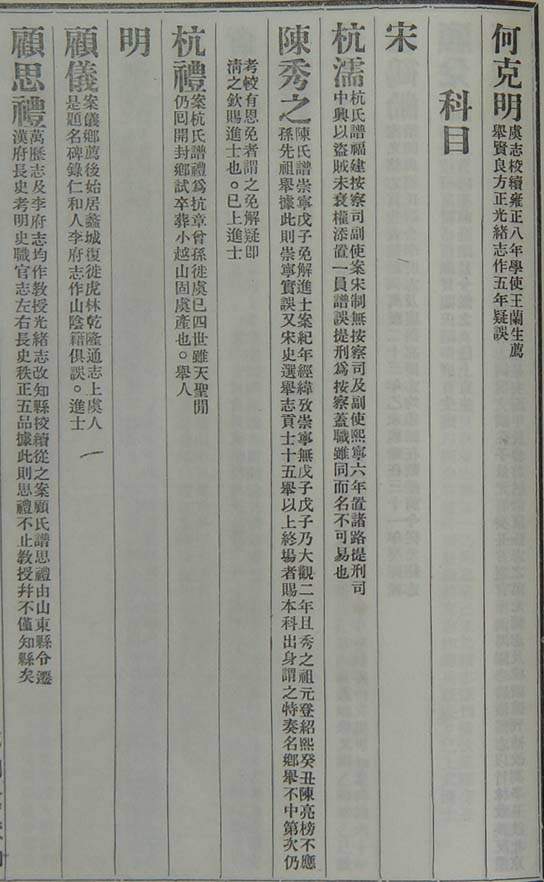 何克明 虞志校續雍正八年學使王蘭生薦
舉賢良方正光緒志作五年疑誤
科目
宋
杭濡 杭氏譜福建按察司副使案宋制無按察司及副使熙寧六年置諸路提刑司
中興以盜賊未衰權添置一員譜誤提刑爲按察蓋職雖同而名不可易也
陳秀之 陳氏譜崇寧戊子免解進士案紀年經緯攷崇寧無戊子戊子乃大觀二年且秀之祖元登紹熙癸丑陳亮榜不應
孫先祖舉據此則崇寧實誤又宋史選舉志貢士十五舉以上終場者賜本科出身謂之特奏名鄉舉不中第次仍
考較有恩免者謂之免解疑卽
淸之欽賜進士也。已上進士
杭禮 案杭氏譜禮爲杭章曾孫徙虞已四世雖天聖閒
仍囘開封鄉試卒葬小越山固虞產也。舉人
明
顧儀 案儀鄉薦後始居蠡城復徙虎林乾隆通志上虞人
是題名碑錄仁和人李府志作山陰籍俱誤。進士
顧思禮 萬歷志及李府志均作教授光緒志改知縣校續從之案顧氏譜思禮由山東縣令遷
漢府長史考明史職官志左右長史秩正五品據此則思禮不止教授幷不僅知縣矣